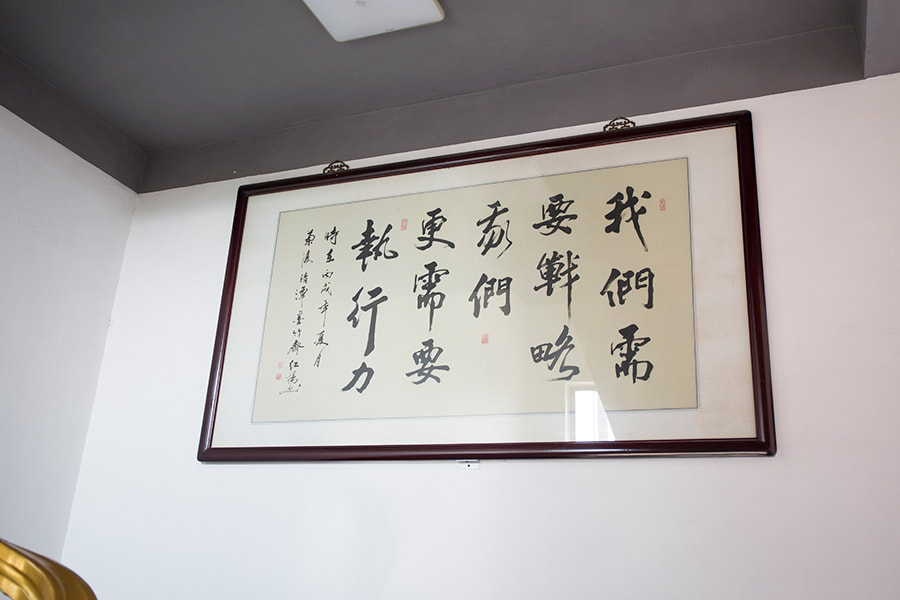 我們需
要戰略
我們
更需要
執行力
時在丙戌年夏月
蘭陵清潭墨竹齋紅